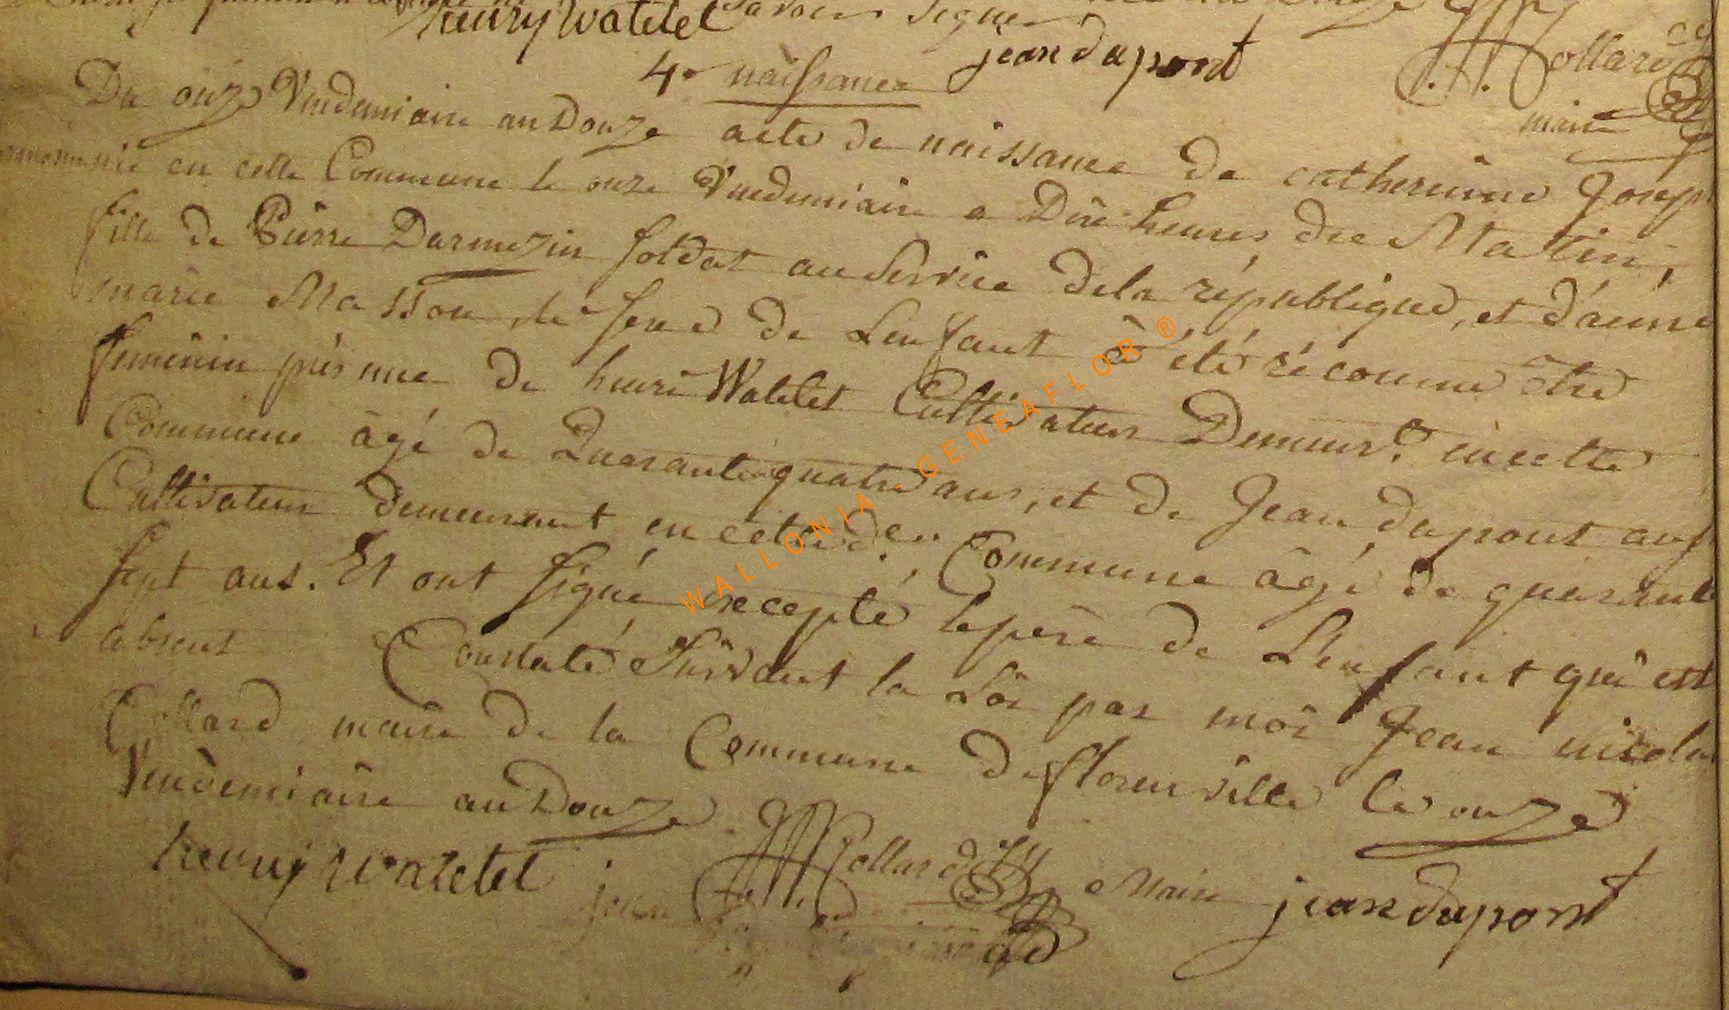 henry Watelet Savoir Signer
jean dupont
Collard
maire
4e naissance
Du onze Vendemiaire an Douze acte de naissance de catherinne Josep
née en cette Commune le onze Vendemiaire a Dix heures du Matin,
fille de Pierre Darmezin soldat au Service dela république, et d'anne
marie Masson, le sexe de Lenfant à été réconnu être
feminin présence de henri Watelet Cultivateur Demeurt. en cette
Commune âgé de Quarante quatre ans, et de Jean dupont aus
Cultivateur demeurant en cette de. Commune âgé de quarante
sept ans. Et ont signé excepté le père de L'enfant qui est
absent Constaté Suivant la Loi par moi Jean nicolas
Collard maire de la Commune de florenville le onze
Vendemiaire an Douze.
henry Watelet Collard Maire jean dupont
WALLONIA-GENEAFLOR ®